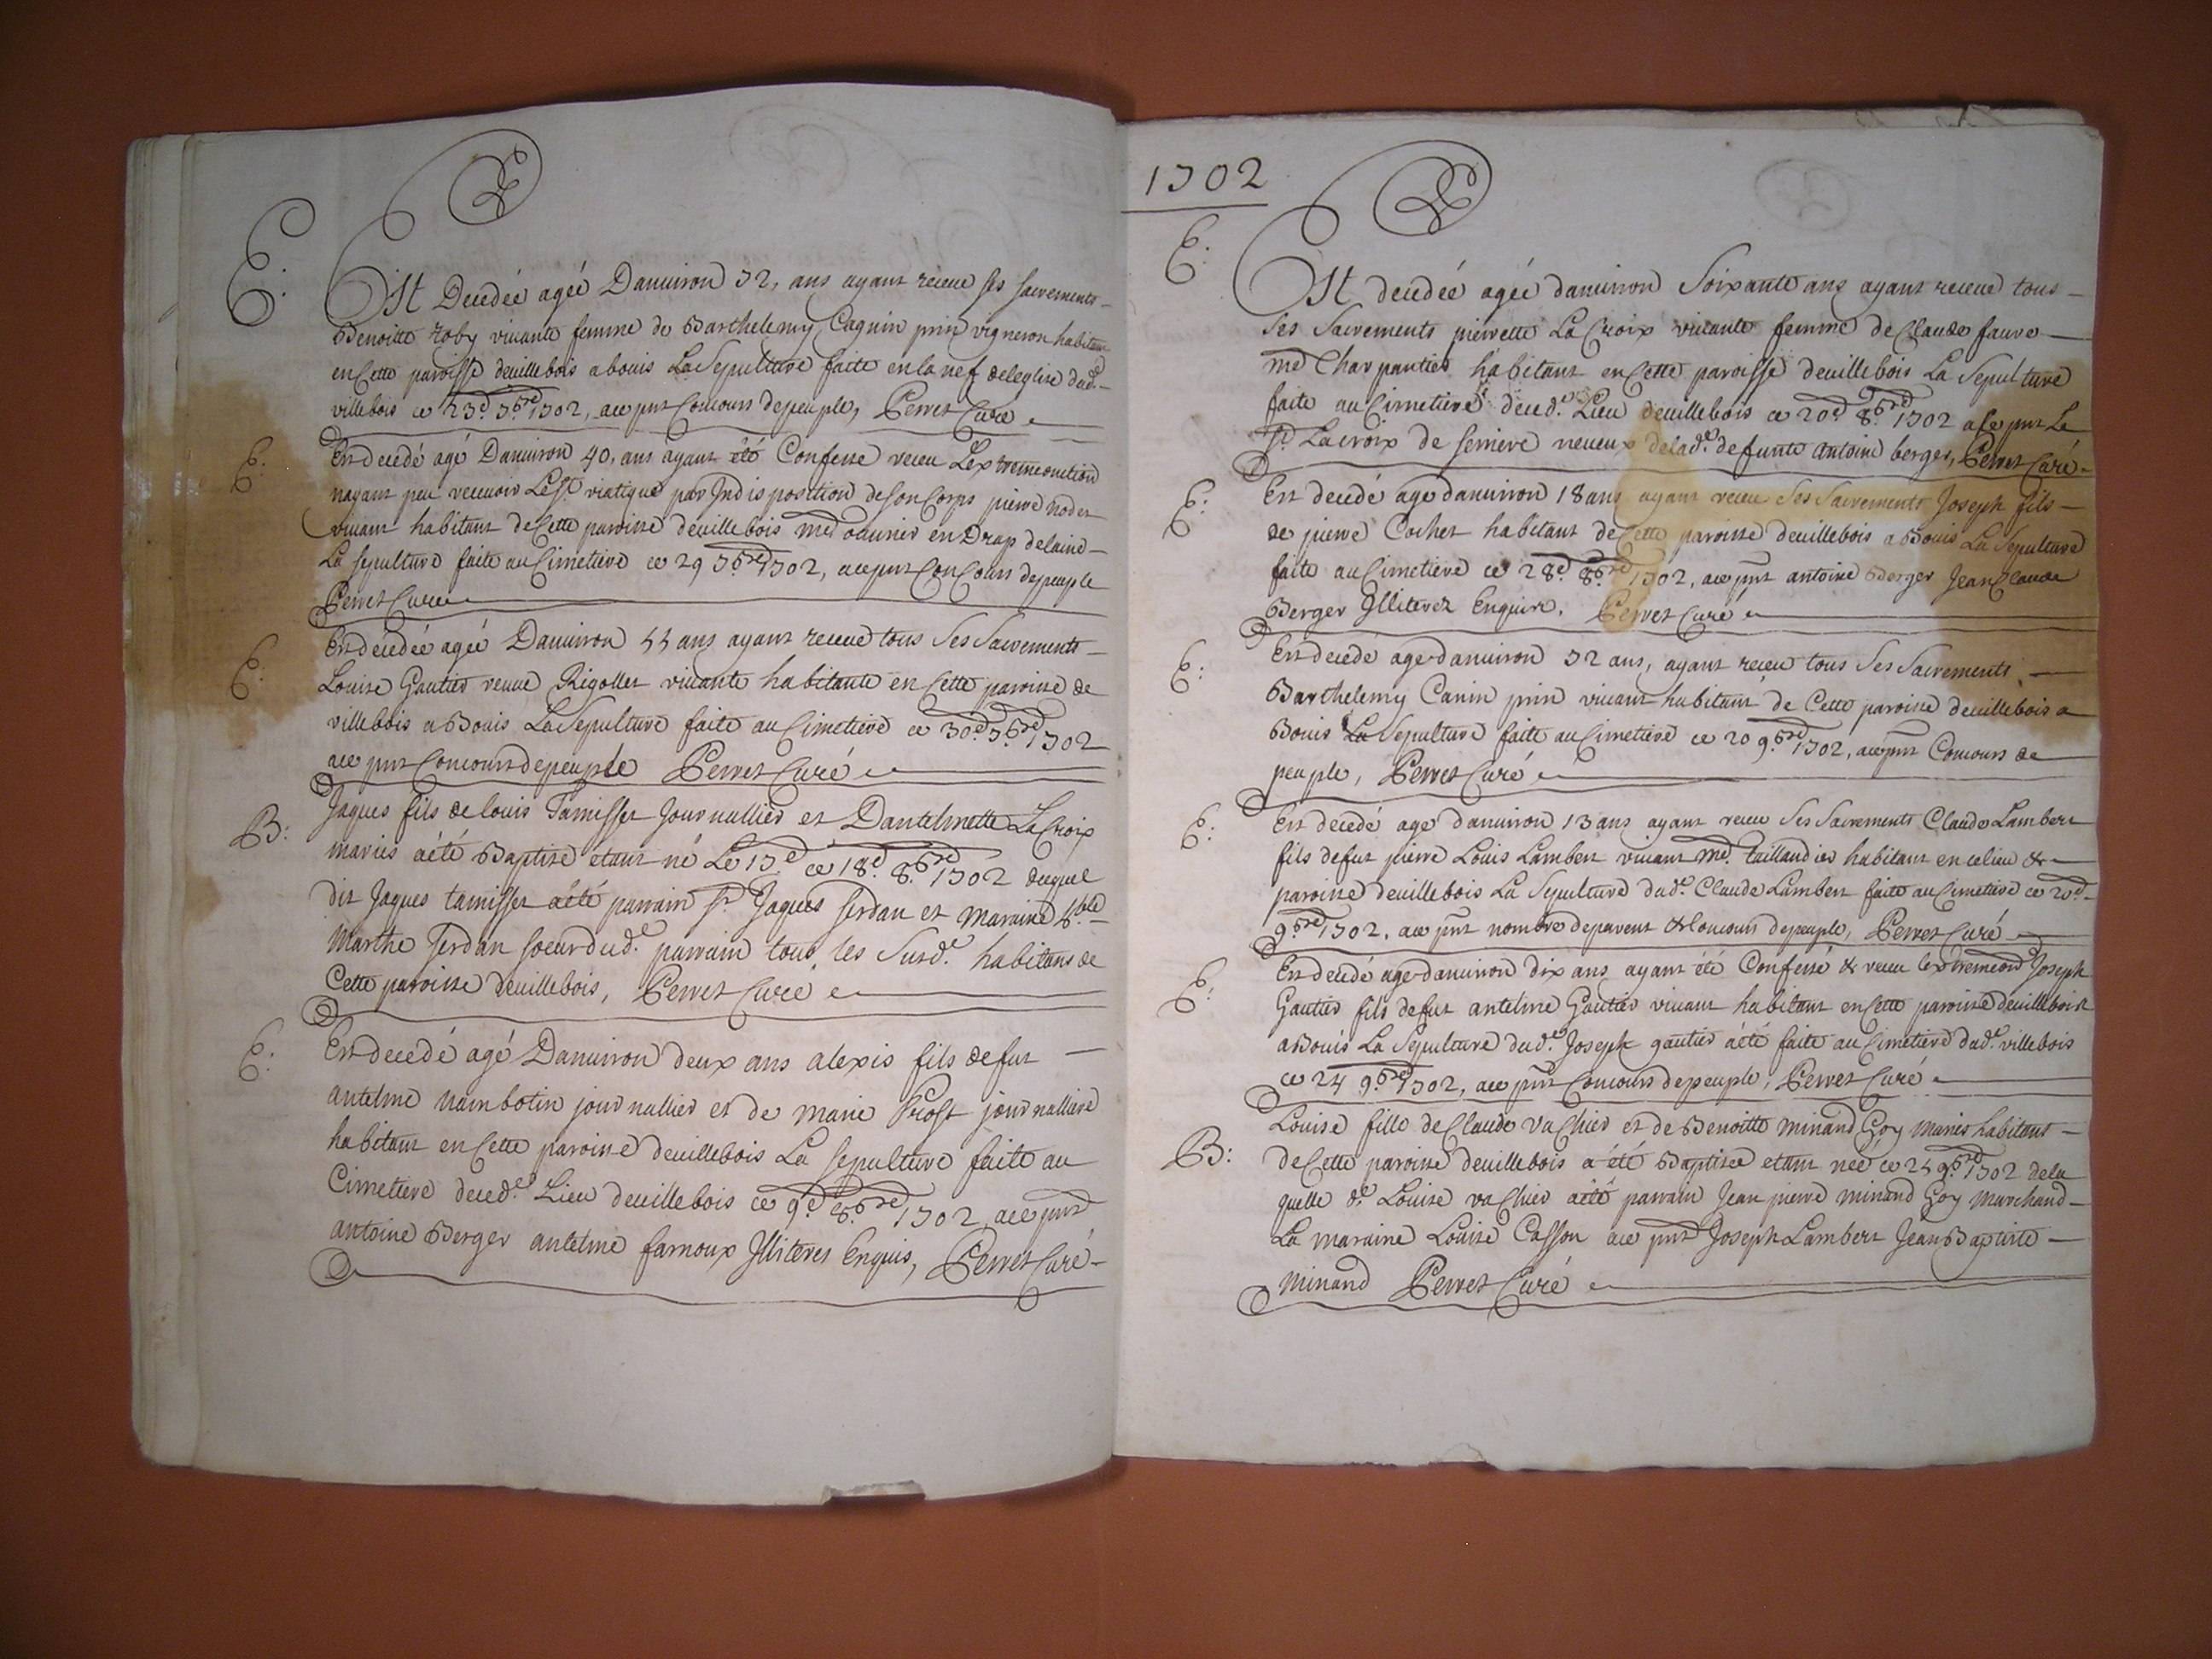 E.
Est Decedée agée Danuiron 72, ans ayant receue ses sacrements
Benoitte roby viuante femme de Barthelemy Cagnin prin vigneron habitant
en Cette paroisse deuillebois a bouis La Sepulture faite en la nef deleglise dud.
villebois ce 23e 7bre 1702, ace pnt Concours depeuple, Perret Curé
E.
Est decedé agé Danuiron 40, ans ayant été Confessé receu Lextremeonction
nayant peu receuoir Le St viatique par Indisposition deson Corps pierre nodet
viuant habitant de Cette paroisse deuillebois md ouurier en Drap delaine
La sepulture faite au Cimetiere ce 29 7bre 1702, ace pnt Concours depeuple
Perret Curé
E.
Est décédée agée Danuiron 55 ans ayant receue tous Ses Sacrements
Louise Gautier veuue Rigollet viuante habitante en Cette paroisse de
villebois a Bouis La Sepulture faite au Cimetiere ce 30e 7bre 1702
ace pnt Concours depeuple Perret Curé
B:
Jaques fils de louis Tamisset Journallier et Dantelmette La Croix
mariés aété Baptisé etant né Le 17e ce 18e 8bre 1702 duquel
dit Jaques tamisset aété parrain Sr Jaques serdan et maraine
Marthe serdan soeur dud. parrain tous les Susd. habitans de
Cette paroisse deuillebois, Perret Curé
E.
Est decedé agé Danuiron deux ans alexis fils de fut
antelme nambotin journallier et de marie Prost journaliere
habitant en Cette paroisse deuillebois La sepulture faite au
Cimetiere deced. Lieu deuillebois ce 9e 8bre 1702 ace pnt
antoine Berger antelme famoux Illiteres Enquis, Perret Curé
1702
E.
Est decedée agée danuiron Soixante ans ayant receue tous
Ses Sacrements pierrette La Croix viuante femme de Claude faure
me Charpantier habitant en Cette paroisse deuillebois La Sepulture
faite au Cimetiere deced. Lieu deuillebois ce 20e 8bre 1702 a ce pnt Le
Sr Lacroix de serriere neueux delad. defunte antoine berger, Perret Curé
E.
Est decedé age danuiron 18 ans ayant receu Ses Sacrements Joseph fils
de pierre Cochet habitant de Cette paroisse deuillebois a Bouis La Sepulture
faite au Cimetiere ce 28e 8bre 1702, ace pnt antoine Berger Jean Claude
Berger Illiterez Enquire. Perret Curé
E.
Est decedé age danuiron 72 ans, ayant receu tous Ses Sacrements
Barthelemy Canin prin viuant habitant de Cette paroisse deuillebois a
Bouis La Sepulture faite au Cimetiere ce 20 9bre 1702, ace pnt Concours de
peuple, Perret Curé
E.
Est decedé age danuiron 13 ans ayant receu Ses Sacrements Claude Lambert
fils defut pierre Louis Lambert viuant md. taillandier habitant en celieu &
paroisse deuillebois La Sepulture dud. Claude Lambert faite au Cimetiere ce 20e
9bre 1702. ace pnt nombre deparent & Concours depeuple, Perret Curé
E.
Est decedé age danuiron dix ans ayant été Confessé & receu lextremeon Joseph
Gautier fils defut antelme Gautier viuant habitant en Cette paroisse deuillebois
a Bouis La Sepulture dud. Joseph gautier aété faite au Cimetiere dud. villebois
ce 24 9bre 1702, ace pnt Concours depeuple, Perret Curé
B:
Louise fille de Claude vaChier et de Benoitte minand Goy mariés habitant
de Cette paroisse deuillebois a été Baptisée etant née ce 24 9bre 1702 dela
quelle d. Louise vaChier aété parrain Jean pierre minand Goy marchand
La maraine Louise Casson ace pnt Joseph Lambert Jean Baptiste
minand Perret Curé